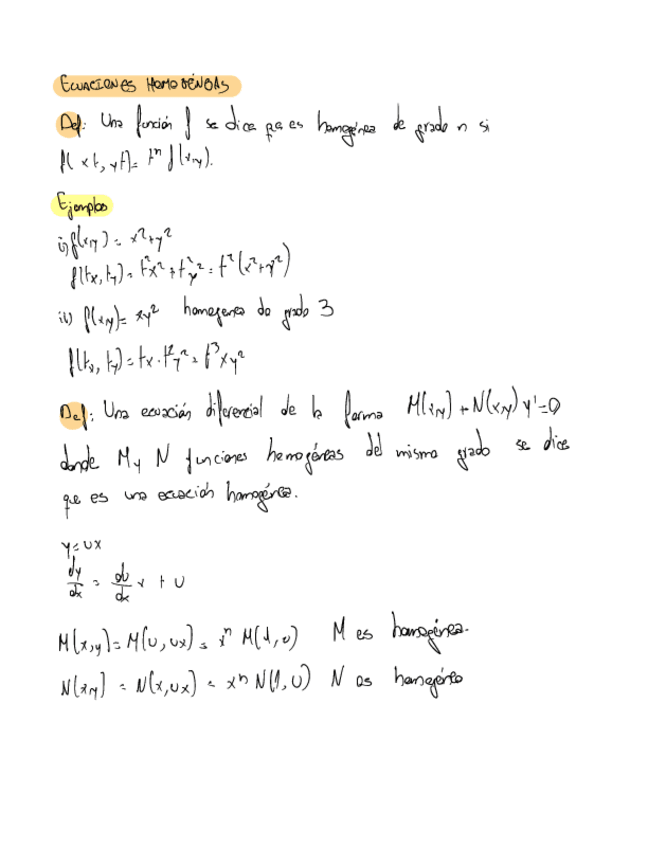 ECUACIONES HOMOGÉNEAS
Def: Una función f se dice que es homogénea de grado n si
f(xt, yt) = tⁿ f(x,y).
Ejemplos
i) f(x,y) = x²+y²
f(tx, ty) = t²x² + t²y² = t²(x²+y²)
ii) f(x,y) = xy² homogenea de grado 3
f(tx, ty) = tx · t²y² = t³xy²
Def: Una ecuación diferencial de la forma M(x,y) + N(x,y) y' = 0
donde M y N funciones homogéneas del mismo grado se dice
que es una ecuación homogénea.
y = ux
dy/dx = du/dx x + u
M(x,y) = M(u, ux) = xⁿ M(1, u) M es homogénea.
N(x,y) = N(x, ux) = xⁿ N(1, u) N es homogénea